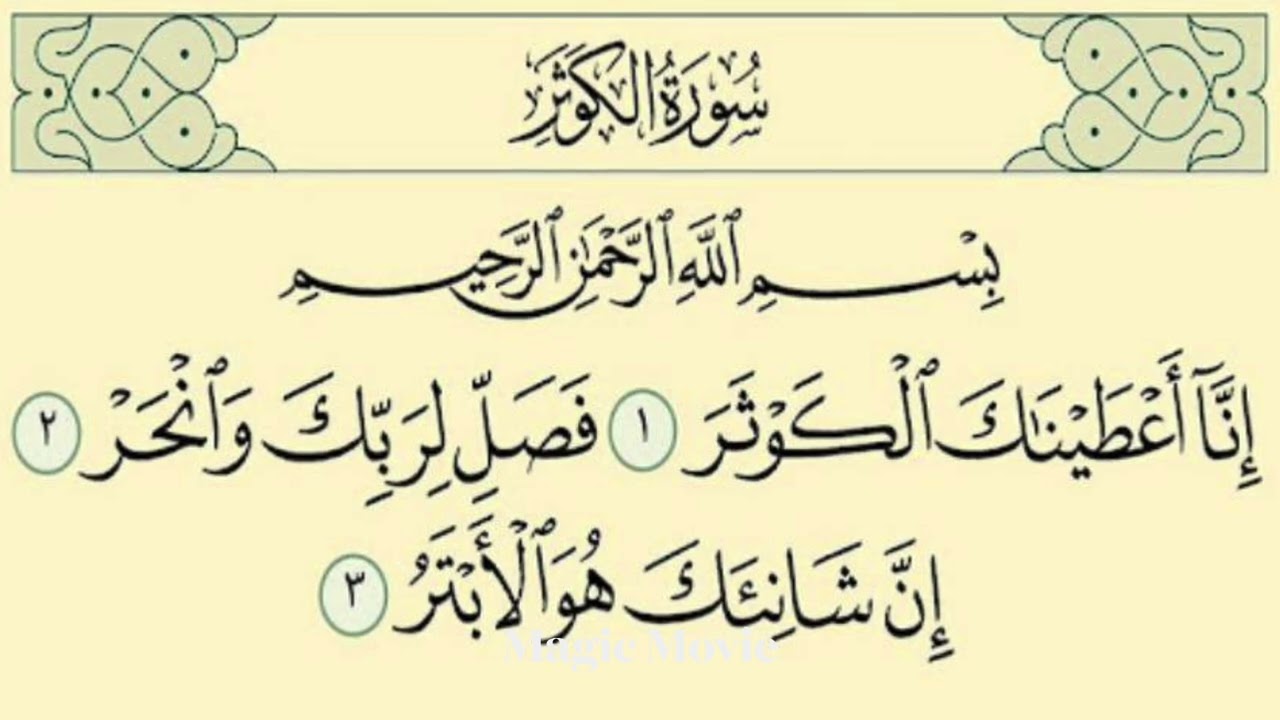 سُورَةُ الكَوْثَرِ
بِسْمِ ٱللَّهِ ٱلرَّحْمَٰنِ ٱلرَّحِيمِ
إِنَّآ أَعْطَيْنَٰكَ ٱلْكَوْثَرَ ١ فَصَلِّ لِرَبِّكَ وَٱنْحَرْ ٢
إِنَّ شَانِئَكَ هُوَ ٱلْأَبْتَرُ ٣
Magic Movie